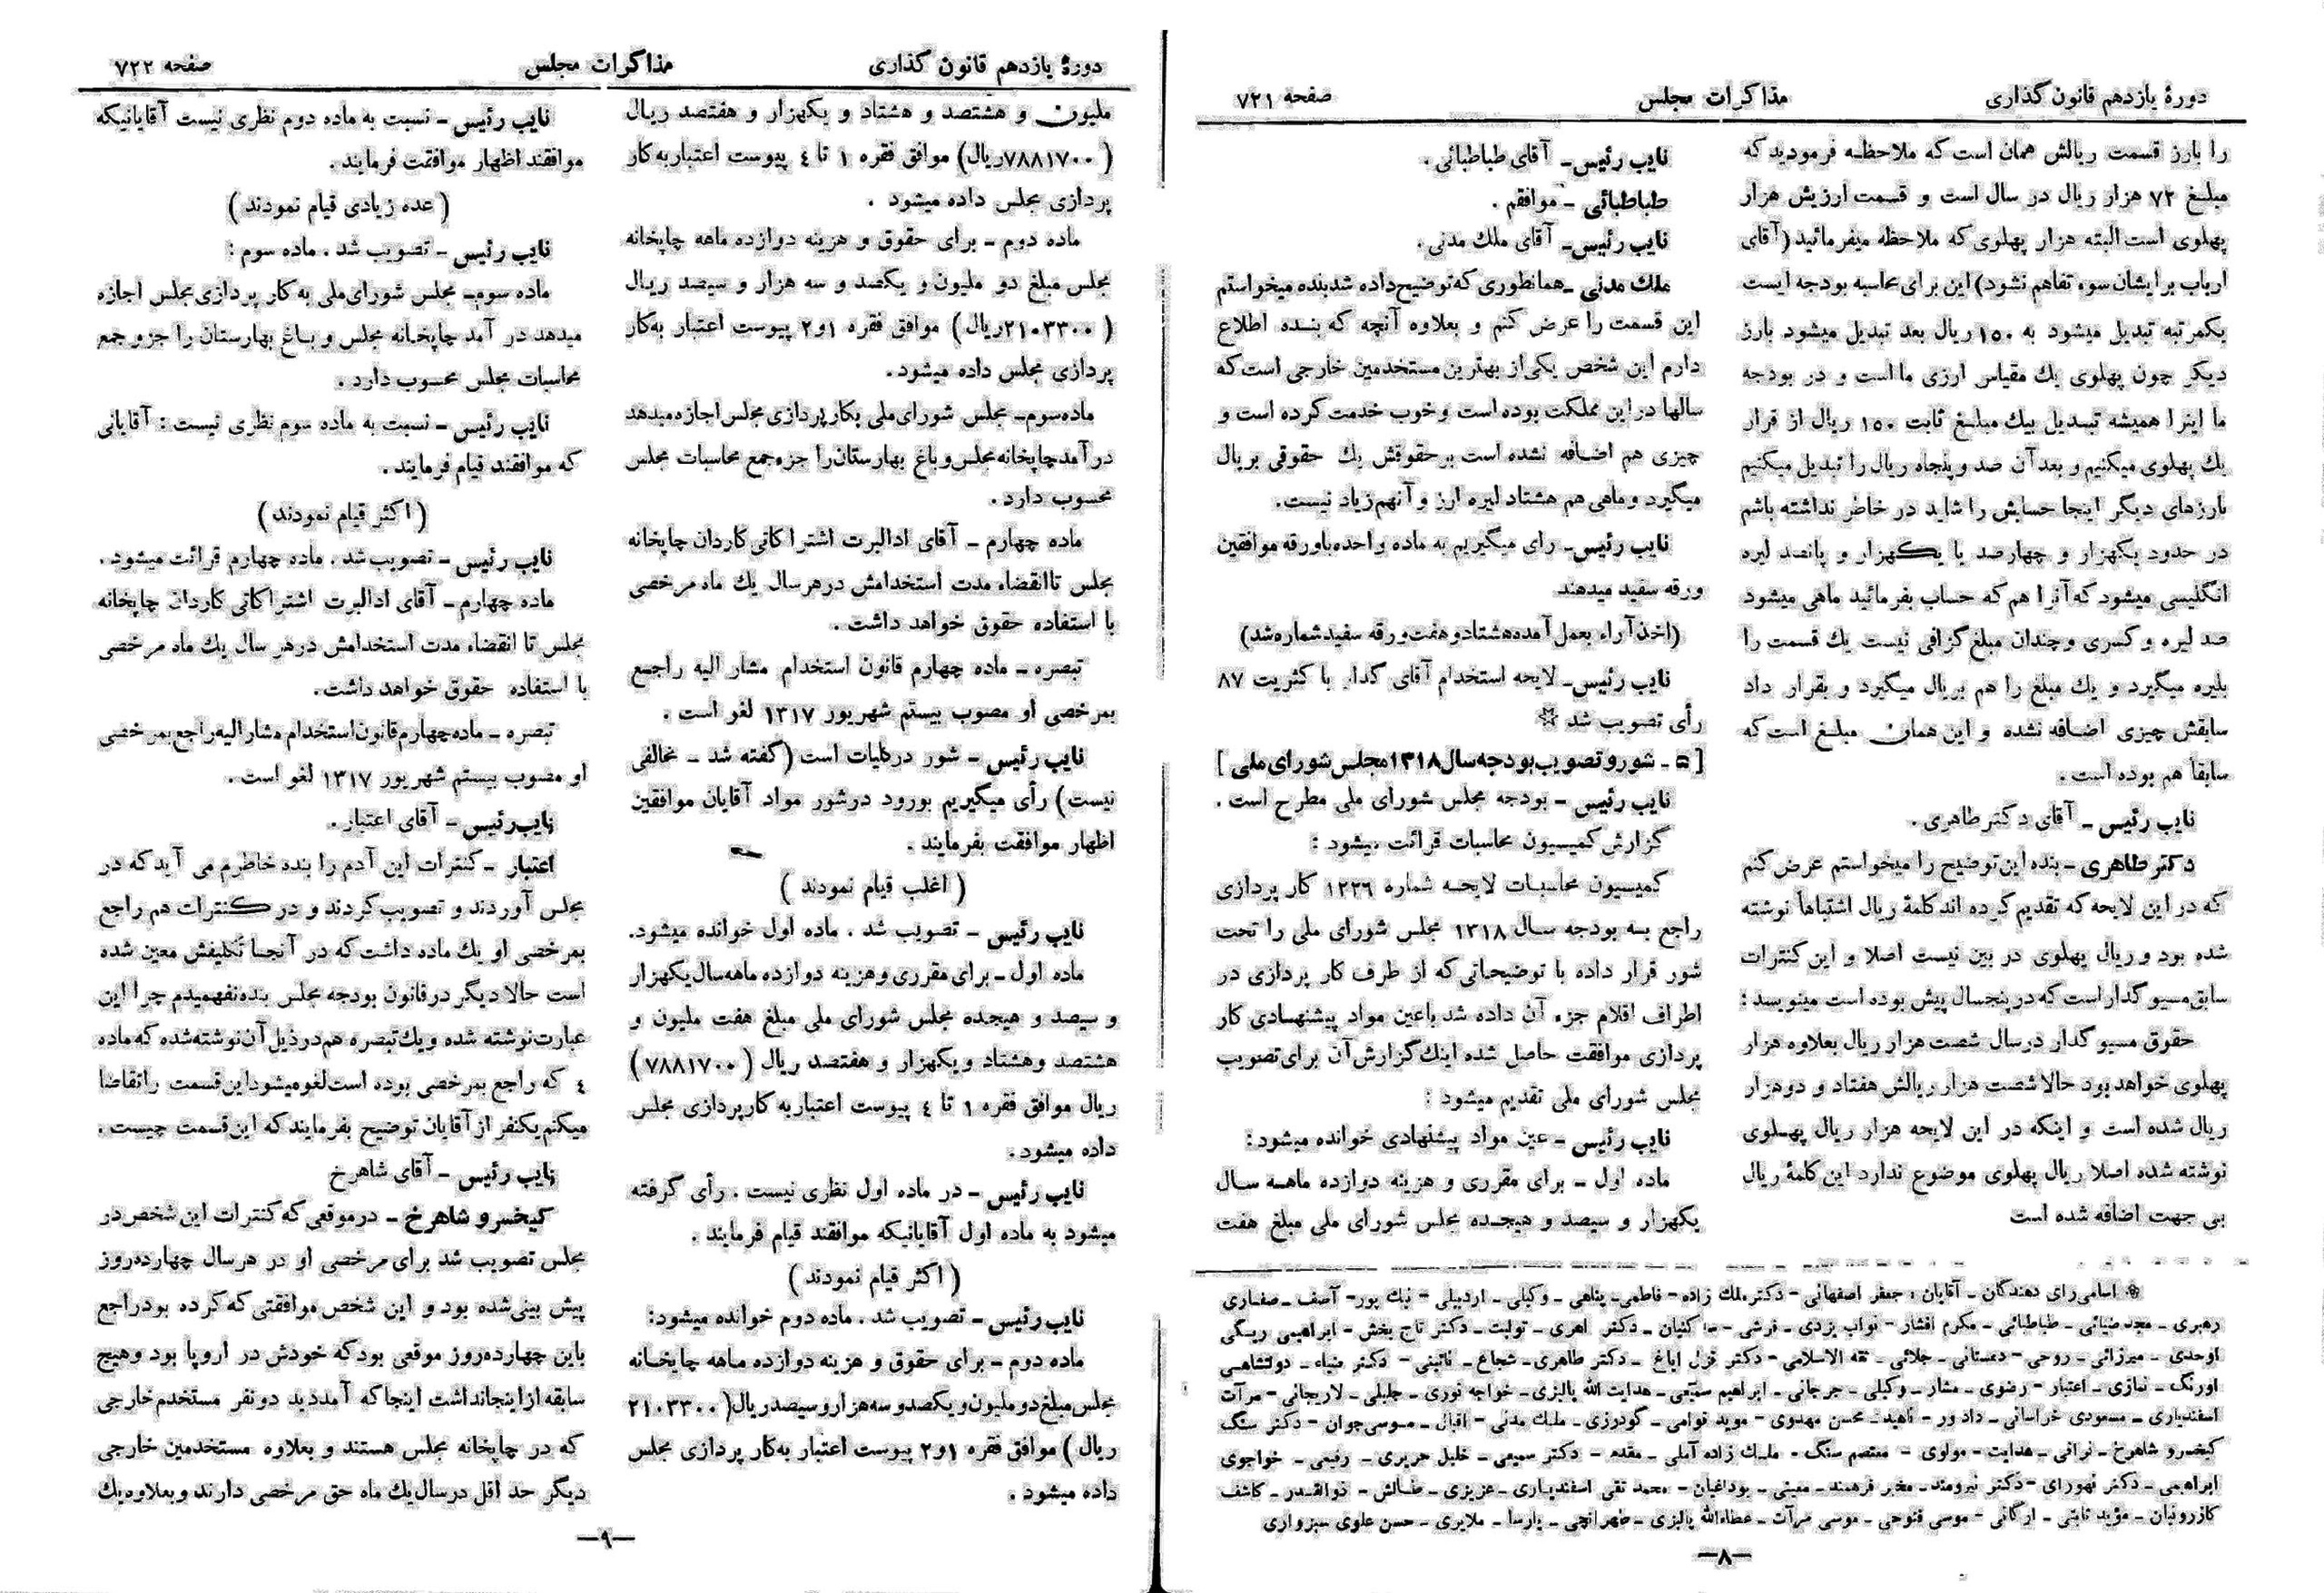 دورهٔ یازدهم قانون گذاری
مذاکرات مجلس
صفحه ۷۲۱
را بارز قسمت ریالش همان است که ملاحظه فرمودید که
مبلغ ۷۲ هزار ریال در سال است و قسمت ارزیش هزار
پهلوی است البته هزار پهلوی که ملاحظه میفرمائید (آقای
ارباب برایشان سوء تفاهم نشود) این برای محاسبه بودجه ایست
یکمرتبه تبدیل میشود به ۱۵۰ ریال بعد تبدیل میشود بارز
دیگر چون پهلوی یك مقیاس ارزی ما است و در بودجه
ما اینرا همیشه تبدیل بیك مبلغ ثابت ۱۵۰ ریال از قرار
یك پهلوی میکنیم و بعد آن صد و پنجاه ریال را تبدیل میکنیم
بارزهای دیگر اینجا حسابش را شاید در خاطر نداشته باشم
در حدود یکهزار و چهارصد یا یکهزار و پانصد لیره
انگلیسی میشود که آنرا هم که حساب بفرمائید ماهی میشود
صد لیره و کسری و چندان مبلغ گزافی نیست یك قسمت را
بلیره میگیرد و یك مبلغ را هم بریال میگیرد و بقرار داد
سابقش چیزی اضافه نشده و این همان مبلغ است که
سابقاً هم بوده است.
نایب رئیس ـ آقای دکتر طاهری.
دکتر طاهری ـ بنده این توضیح را میخواستم عرض کنم
که در این لایحه که تقدیم کرده اند کلمهٔ ریال اشتباهاً نوشته
شده بود و ریال پهلوی در بین نیست اصلا و این کنترات
سابق مسیو گدار است که در پنجسال پیش بوده است مینویسد:
حقوق مسیو گدار در سال شصت هزار ریال بعلاوه هزار
پهلوی خواهد بود حالا شصت هزار ریالش هفتاد و دو هزار
ریال شده است و اینکه در این لایحه هزار ریال پهلوی
نوشته شده اصلا ریال پهلوی موضوع ندارد این کلمهٔ ریال
بی جهت اضافه شده است
نایب رئیس ـ آقای طباطبائی.
طباطبائی ـ موافقم.
نایب رئیس ـ آقای ملك مدنی.
ملك مدنی ـ همانطوری که توضیح داده شد بنده میخواستم
این قسمت را عرض کنم و بعلاوه آنچه که بنده اطلاع
دارم این شخص یکی از بهترین مستخدمین خارجی است که
سالها در این مملکت بوده است و خوب خدمت کرده است و
چیزی هم اضافه نشده است بر حقوقش یك حقوقی بریال
میگیرد و ماهی هم هشتاد لیره ارز و آنهم زیاد نیست.
نایب رئیس ـ رای میگیریم به ماده واحده باورقه موافقین
ورقه سفید میدهند
(اخذ آراء بعمل آمده هشتاد و هفت ورقه سفید شماره شد)
نایب رئیس ـ لایحه استخدام آقای گدار با کثریت ۸۷
رأی تصویب شد ☆
[۵ ـ شور و تصویب بودجه سال ۱۳۱۸ مجلس شورای ملی]
نایب رئیس ـ بودجه مجلس شورای ملی مطرح است.
گزارش کمیسیون محاسبات قرائت میشود:
کمیسیون محاسبات لایحه شماره ۱۲۲۶ کار پردازی
راجع به بودجه سال ۱۳۱۸ مجلس شورای ملی را تحت
شور قرار داده با توضیحاتی که از طرف کار پردازی در
اطراف اقلام جزء آن داده شد باعین مواد پیشنهادی کار
پردازی موافقت حاصل شده اینك گزارش آن برای تصویب
مجلس شورای ملی تقدیم میشود:
نایب رئیس ـ عین مواد پیشنهادی خوانده میشود:
ماده اول ـ برای مقرری و هزینه دوازده ماهه سال
یکهزار و سیصد و هیجده مجلس شورای ملی مبلغ هفت
☆ اسامی رای دهندگان ـ آقایان: جعفر اصفهانی - دکتر ملك زاده - فاطمی - پناهی ـ وکیلی ـ اردبیلی - نیك پور - آصف ـ صفاری
رهبری ـ مجد ضیائی ـ طباطبائی ـ مکرم افشار - نواب یزدی ـ قرشی - ساکنیان ـ دکتر اهری ـ تولیت ـ دکتر تاج بخش - ابراهیمی ریگی
اوحدی ـ میرزائی ـ روحی - دبستانی ـ جلائی ـ ثقة الاسلامی - دکتر قزل ایاغ ـ دکتر طاهری ـ شجاع ـ نائینی - دکتر ضیاء ـ دولتشاهی
اورنگ ـ نمازی ـ اعتبار - رضوی ـ مشار ـ وکیلی ـ جرجانی ـ ابراهیم سمیعی ـ هدایت الله پالیزی ـ خواجه نوری ـ جلیلی ـ لاریجانی - مرآت
اسفندیاری ـ مسعودی خراسانی ـ داد ور - ناهید ـ محسن مهدوی - موید قوامی ـ گودرزی ـ ملك مدنی - اقبال ـ موسی جوان - دکتر سنگ
کیخسرو شاهرخ ـ نراقی ـ هدایت - مولوی - معتصم سنگ - ملك زاده آملی ـ مقدم - دکتر سمیعی ـ خلیل حریری ـ رفیعی ـ خواجوی
ابراهیمی ـ دکتر نهورای - دکتر نیرومند ـ مخبر فرهمند ـ معینی ـ بوداغیان - محمد تقی اسفندیاری ـ عزیزی ـ طالش - ذوالقدر ـ کاشف
کازرونیان ـ مؤید ثابتی ـ ارگانی - موسی فتوحی ـ موسی مرآت ـ عطاءالله پالیزی ـ طهرانچی ـ پارسا ـ ملایری ـ حسن علوی سبزواری
—۸—
دورهٔ یازدهم قانون گذاری
مذاکرات مجلس
صفحه ۷۲۲
ملیون و هشتصد و هشتاد و یکهزار و هفتصد ریال
(۷۸۸۱۷۰۰ریال) موافق فقره ۱ تا ٤ پیوست اعتبار به کار
پردازی مجلس داده میشود.
ماده دوم ـ برای حقوق و هزینه دوازده ماهه چاپخانه
مجلس مبلغ دو ملیون و یکصد و سه هزار و سیصد ریال
(۲۱۰۳۳۰۰ریال) موافق فقره ۱و۲ پیوست اعتبار به کار
پردازی مجلس داده میشود.
ماده سوم ـ مجلس شورای ملی بکار پردازی مجلس اجازه میدهد
در آمد چاپخانه مجلس و باغ بهارستان را جزء جمع محاسبات مجلس
محسوب دارد.
ماده چهارم ـ آقای ادالبرت اشترا کاتی کاردان چاپخانه
مجلس تا انقضاء مدت استخدامش در هر سال یك ماه مرخصی
با استفاده حقوق خواهد داشت.
تبصره ـ ماده چهارم قانون استخدام مشار الیه راجع
بمرخصی او مصوب بیستم شهریور ۱۳۱۷ لغو است.
نایب رئیس ـ شور در کلیات است (گفته شد ـ مخالفی
نیست) رأی میگیریم بورود در شور مواد آقایان موافقین
اظهار موافقت بفرمایند.
(اغلب قیام نمودند)
نایب رئیس ـ تصویب شد. ماده اول خوانده میشود.
ماده اول ـ برای مقرری و هزینه دوازده ماهه سال یکهزار
و سیصد و هیجده مجلس شورای ملی مبلغ هفت ملیون و
هشتصد و هشتاد و یکهزار و هفتصد ریال (۷۸۸۱۷۰۰)
ریال موافق فقره ۱ تا ٤ پیوست اعتبار به کار پردازی مجلس
داده میشود.
نایب رئیس ـ در ماده اول نظری نیست. رأی گرفته
میشود به ماده اول آقایانیکه موافقند قیام فرمایند.
(اکثر قیام نمودند)
نایب رئیس ـ تصویب شد. ماده دوم خوانده میشود:
ماده دوم ـ برای حقوق و هزینه دوازده ماهه چاپخانه
مجلس مبلغ دو ملیون و یکصد و سه هزار و سیصد ریال (۲۱۰۳۳۰۰
ریال) موافق فقره ۱و۲ پیوست اعتبار به کار پردازی مجلس
داده میشود.
نایب رئیس ـ نسبت به ماده دوم نظری نیست آقایانیکه
موافقند اظهار موافقت فرمایند.
(عده زیادی قیام نمودند)
نایب رئیس ـ تصویب شد. ماده سوم:
ماده سوم ـ مجلس شورای ملی به کار پردازی مجلس اجازه
میدهد در آمد چاپخانه مجلس و باغ بهارستان را جزو جمع
محاسبات مجلس محسوب دارد.
نایب رئیس ـ نسبت به ماده سوم نظری نیست: آقایانی
که موافقند قیام فرمایند.
(اکثر قیام نمودند)
نایب رئیس ـ تصویب شد. ماده چهارم قرائت میشود.
ماده چهارم ـ آقای ادالبرت اشترا کاتی کاردان چاپخانه
مجلس تا انقضاء مدت استخدامش در هر سال یك ماه مرخصی
با استفاده حقوق خواهد داشت.
تبصره ـ ماده چهارم قانون استخدام مشار الیه راجع بمرخصی
او مصوب بیستم شهریور ۱۳۱۷ لغو است.
نایب رئیس ـ آقای اعتبار.
اعتبار ـ کنترات این آدم را بنده خاطرم می آید که در
مجلس آوردند و تصویب کردند و در کنترات هم راجع
بمرخصی او یك ماده داشت که در آنجا تکلیفش معین شده
است حالا دیگر در قانون بودجه مجلس بنده نفهمیدم چرا این
عبارت نوشته شده و یك تبصره هم در ذیل آن نوشته شده که ماده
٤ که راجع بمرخصی بوده است لغو میشود این قسمت را تقاضا
میکنم یکنفر از آقایان توضیح بفرمایند که این قسمت چیست.
نایب رئیس ـ آقای شاهرخ
کیخسرو شاهرخ ـ در موقعی که کنترات این شخص در
مجلس تصویب شد برای مرخصی او در هر سال چهارده روز
پیش بینی شده بود و این شخص موافقتی که کرده بود راجع
باین چهارده روز موقعی بود که خودش در اروپا بود و هیچ
سابقه از اینجا نداشت اینجا که آمد دید دو نفر مستخدم خارجی
که در چاپخانه مجلس هستند و بعلاوه مستخدمین خارجی
دیگر حد اقل در سال یك ماه حق مرخصی دارند و بعلاوه یك
—۹—